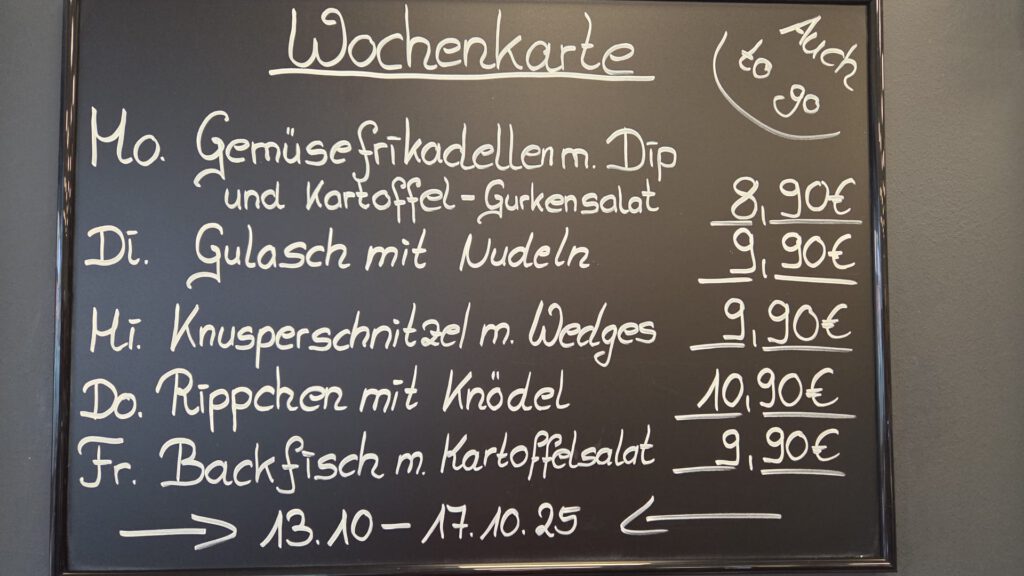 Wochenkarte
Auch
to
go
Mo. Gemüsefrikadellen m. Dip
und Kartoffel-Gurkensalat 8,90€
Di. Gulasch mit Nudeln 9,90€
Mi. Knusperschnitzel m. Wedges 9,90€
Do. Rippchen mit Knödel 10,90€
Fr. Backfisch m. Kartoffelsalat 9,90€
→ 13.10 – 17.10.25 ←